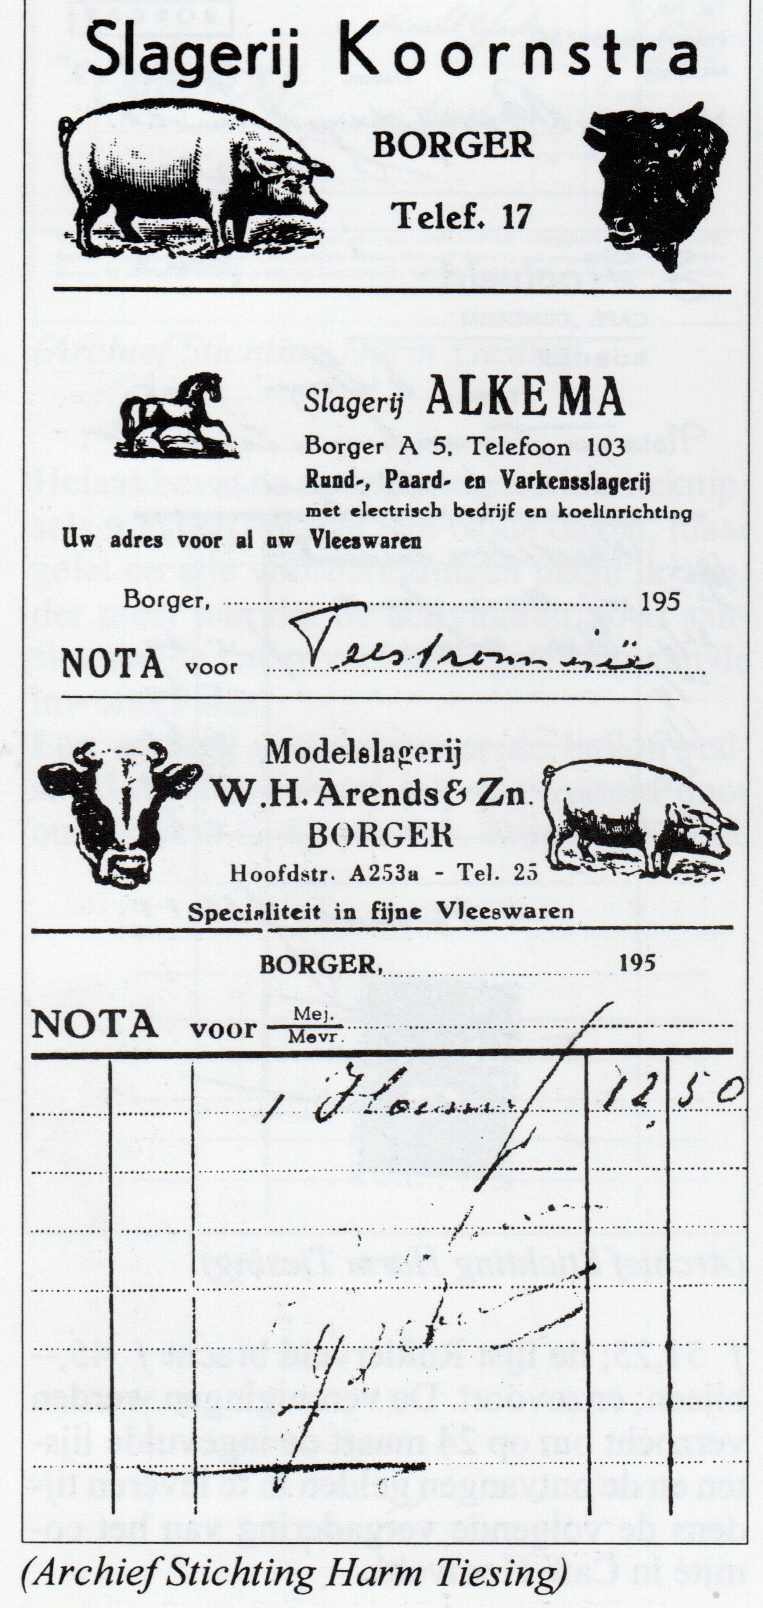 Slagerij Koornstra
BORGER
Telef. 17
Slagerij ALKEMA
Borger A 5, Telefoon 103
Rund-, Paard- en Varkensslagerij
met electrisch bedrijf en koelinrichting
Uw adres voor al uw Vleeswaren
Borger, 195
NOTA voor
Modelslagerij
W.H. Arends & Zn.
BORGER
Hoofdstr. A253a - Tel. 25
Specialiteit in fijne Vleeswaren
BORGER, 195
NOTA voor Mej.
Mevr.
1 12 50
(Archief Stichting Harm Tiesing)